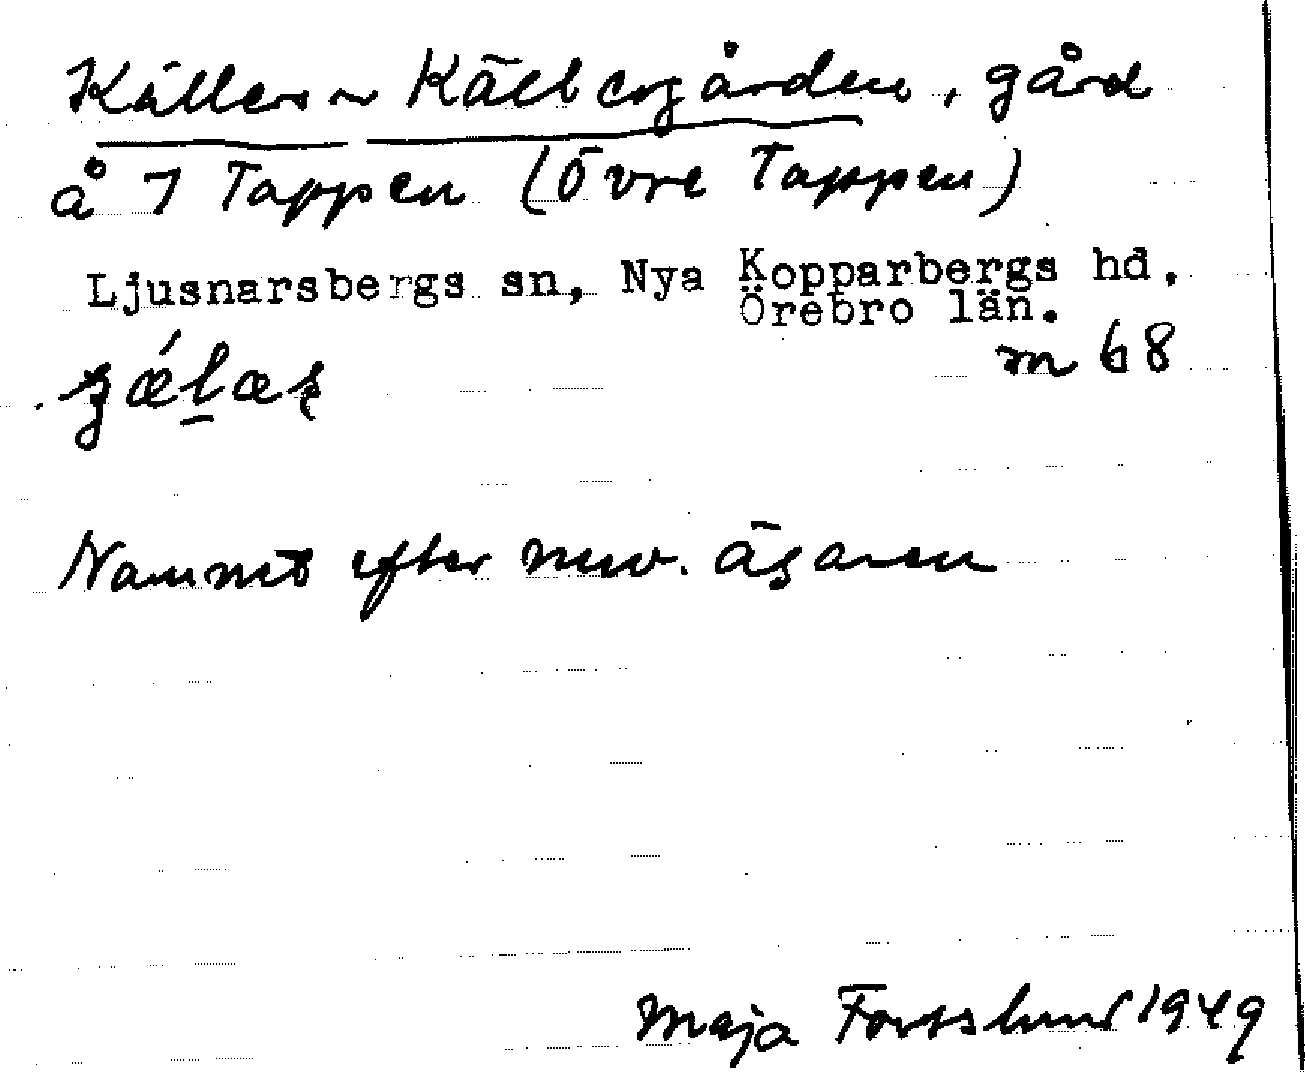 Källers ~ Källbergården, gård
å 7 Tappen (Övre Tappen)
Ljusnarsbergs sn, Nya Kopparbergs hd,
Örebro län.
m 68
Namnet efter nuv. ägaren
Maja Forsslund 1949